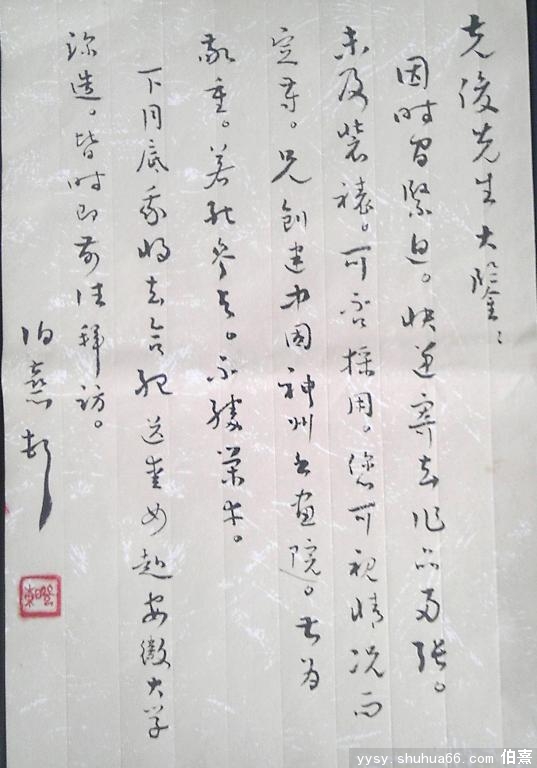 克俊先生大鉴：
因时间紧迫。快递寄去作品两张。
未及装裱。可否採用。您可视情况而
定夺。兄创建中国神州书画院。甚为
敬重。若能参与。不胜荣幸。
下月底我将去合肥送爱女赴安徽大学
深造。皆时即前往拜访。
伯熹顿
yysy.shuhua66.com 伯熹